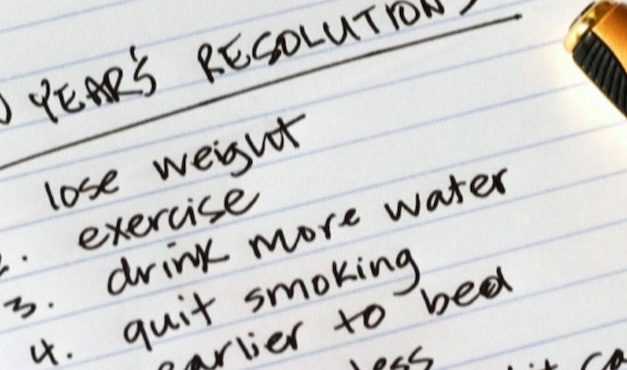 YEAR'S RESOLUTIONS
lose weight
2. exercise
3. drink more water
4. quit smoking
earlier to bed
less